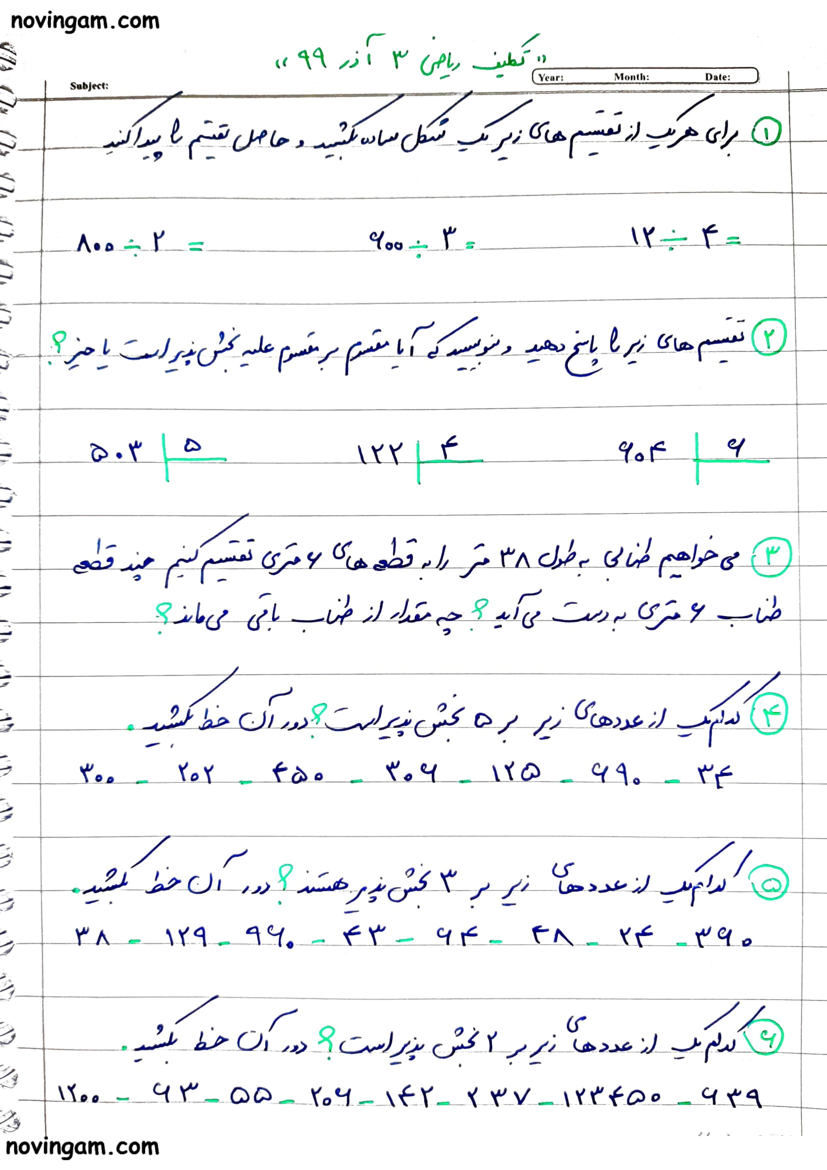 novingam.com
"تکلیف ریاضی ۳ آذر ۹۹"
Subject: Year: Month: Date:
۱ برای هر یک از تقسیم های زیر یک شکل ساده بکشید و حاصل تقسیم را پیدا کنید
۸۰۰ ÷ ۲ = ۶۰۰ ÷ ۳ = ۱۲ ÷ ۴ =
۲ تقسیم های زیر را پاسخ دهید و بنویسید که آیا مقسوم بر مقسوم علیه بخش پذیر است یا خیر؟
۵۰۳ | ۵ ۱۲۲ | ۴ ۶۰۴ | ۶
۳ می خواهیم طنابی به طول ۳۸ متر را به قطعه های ۶ متری تقسیم کنیم چند قطعه
طناب ۶ متری به دست می آید؟ چه مقدار از طناب باقی می ماند؟
۴ کدام یک از عددهای زیر بر ۵ بخش پذیر است؟ دور آن خط بکشید.
۳۰۰ - ۲۰۲ - ۴۵۰ - ۳۰۶ - ۱۲۵ - ۶۹۰ - ۳۴
۵ کدام یک از عددهای زیر بر ۳ بخش پذیر هستند؟ دور آن خط بکشید.
۳۸ - ۱۲۹ - ۹۶۰ - ۴۳ - ۶۴ - ۴۸ - ۲۴ - ۳۹۰
۶ کدام یک از عددهای زیر بر ۲ بخش پذیر است؟ دور آن خط بکشید.
۱۲۰۰ - ۶۳ - ۵۵ - ۲۰۶ - ۱۴۲ - ۲۳۷ - ۱۲۳۴۵۰ - ۶۳۹
novingam.com